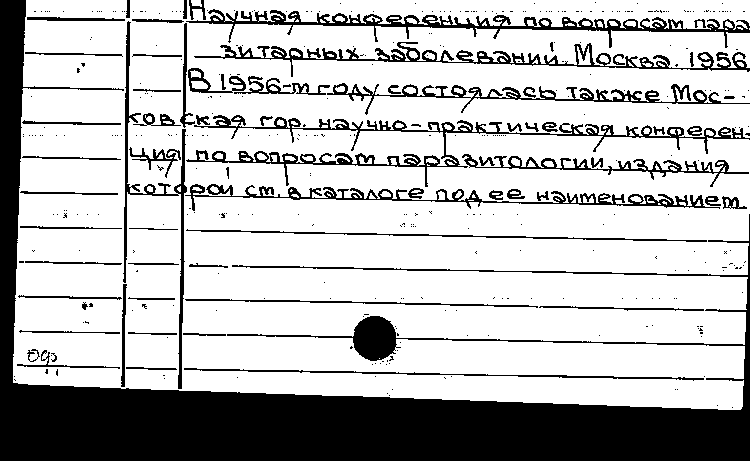 Научная конференция по вопросам пара
зитарных заболеваний. Москва. 1956
В 1956-м году состоялась также Мос-
ковская гор. научно-практическая конферен-
ция по вопросам паразитологии, издания
которой см. в каталоге под ее наименованием